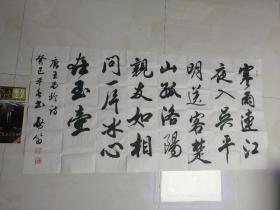 寒雨連江
夜入吳平
明送客楚
山孤洛陽
親友如相
問一片冰心
在玉壺
唐王昌齡詩
癸巳年書